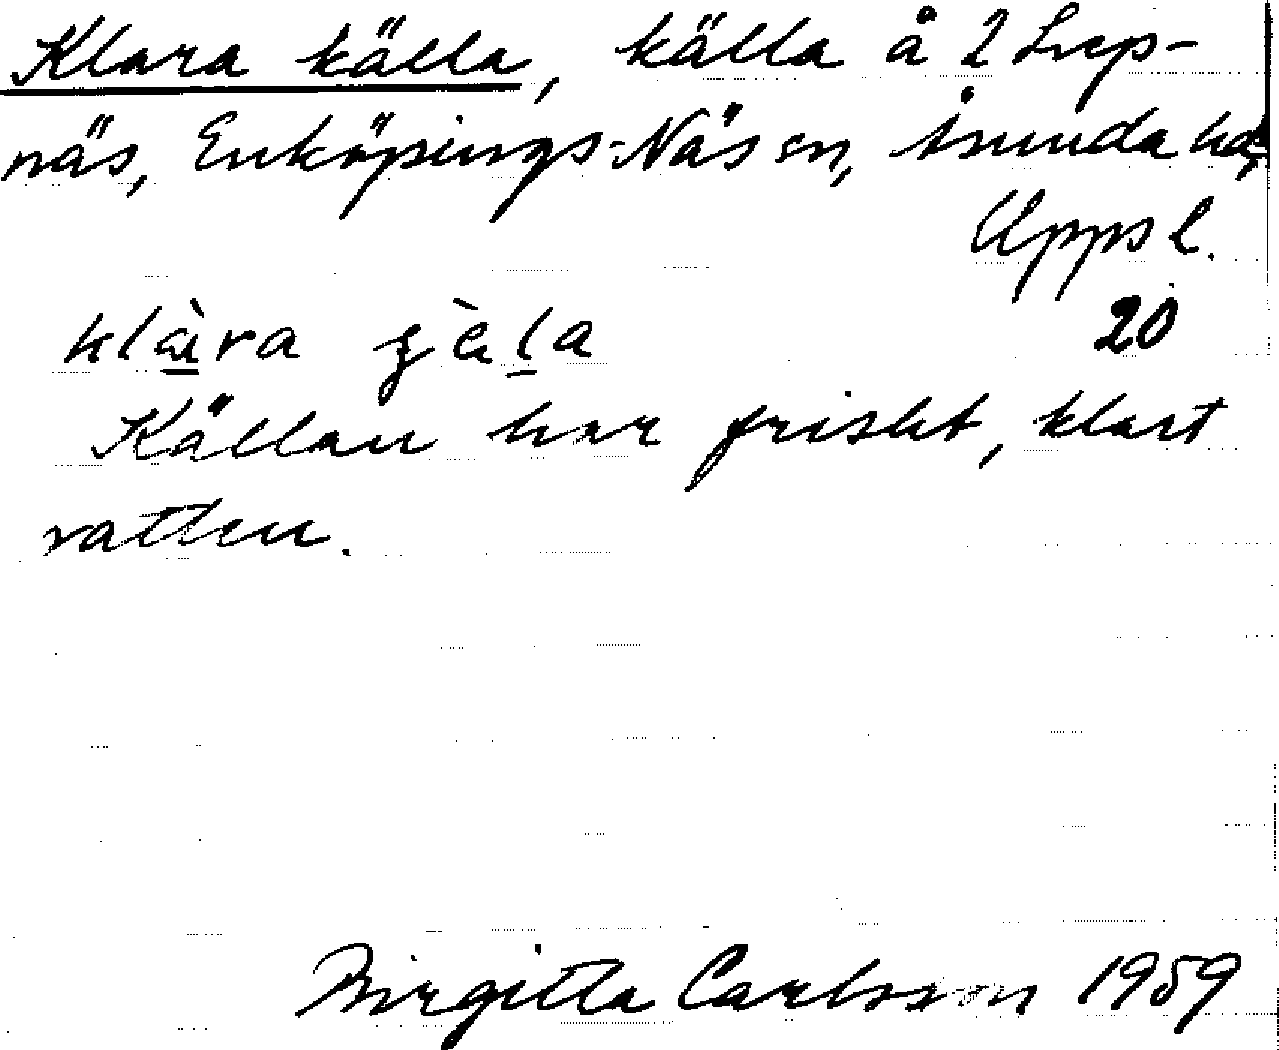 Klara källa, källa å 2 Lep-
näs, Enköpings-Näs sn, Åsunda hd,
Uppsl.
klàra gæ̀la 20
Källan har friskt, klart
vatten.
Birgitta Carlsson 1959